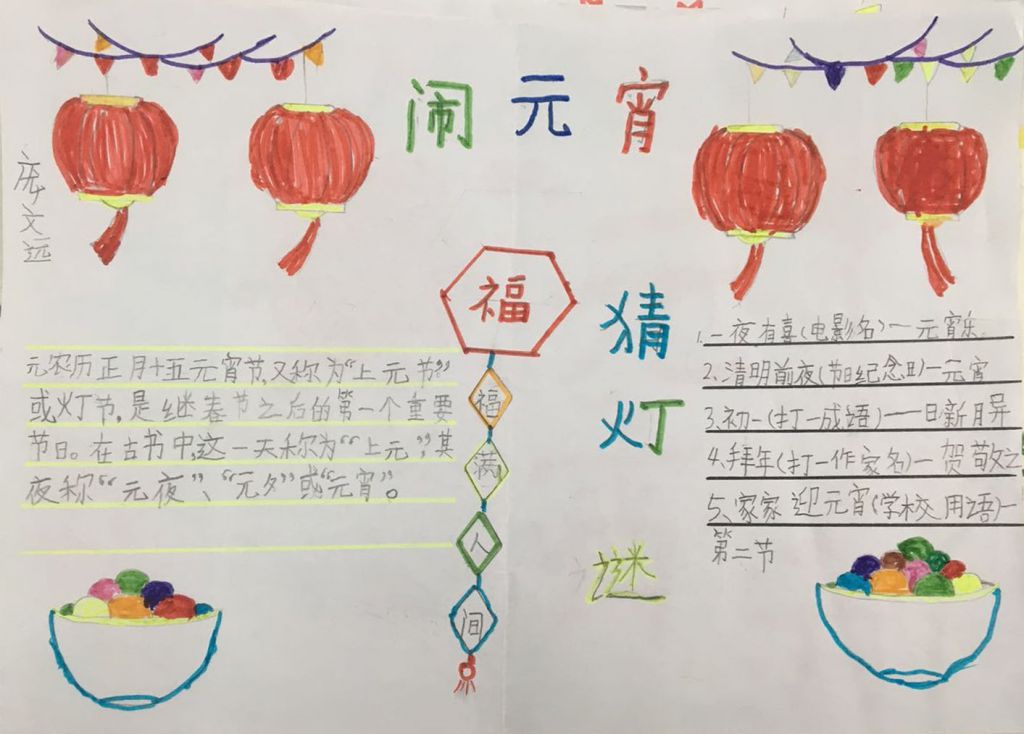 闹元宵
庞文远
元农历正月十五元宵节,又称为“上元节”
或灯节,是继春节之后的第一个重要
节日。在古书中,这一天称为“上元”,其
夜称“元夜”、“元夕”或“元宵”。
福
福
满
人
间
猜
灯
谜
1.一夜有喜(电影名)一元宵乐
2.清明前夜(节日纪念日)一元宵
3.初一(打一成语)一一日新月异
4.拜年(打一作家名)一贺敬之
5.家家迎元宵(学校用语)一
第二节